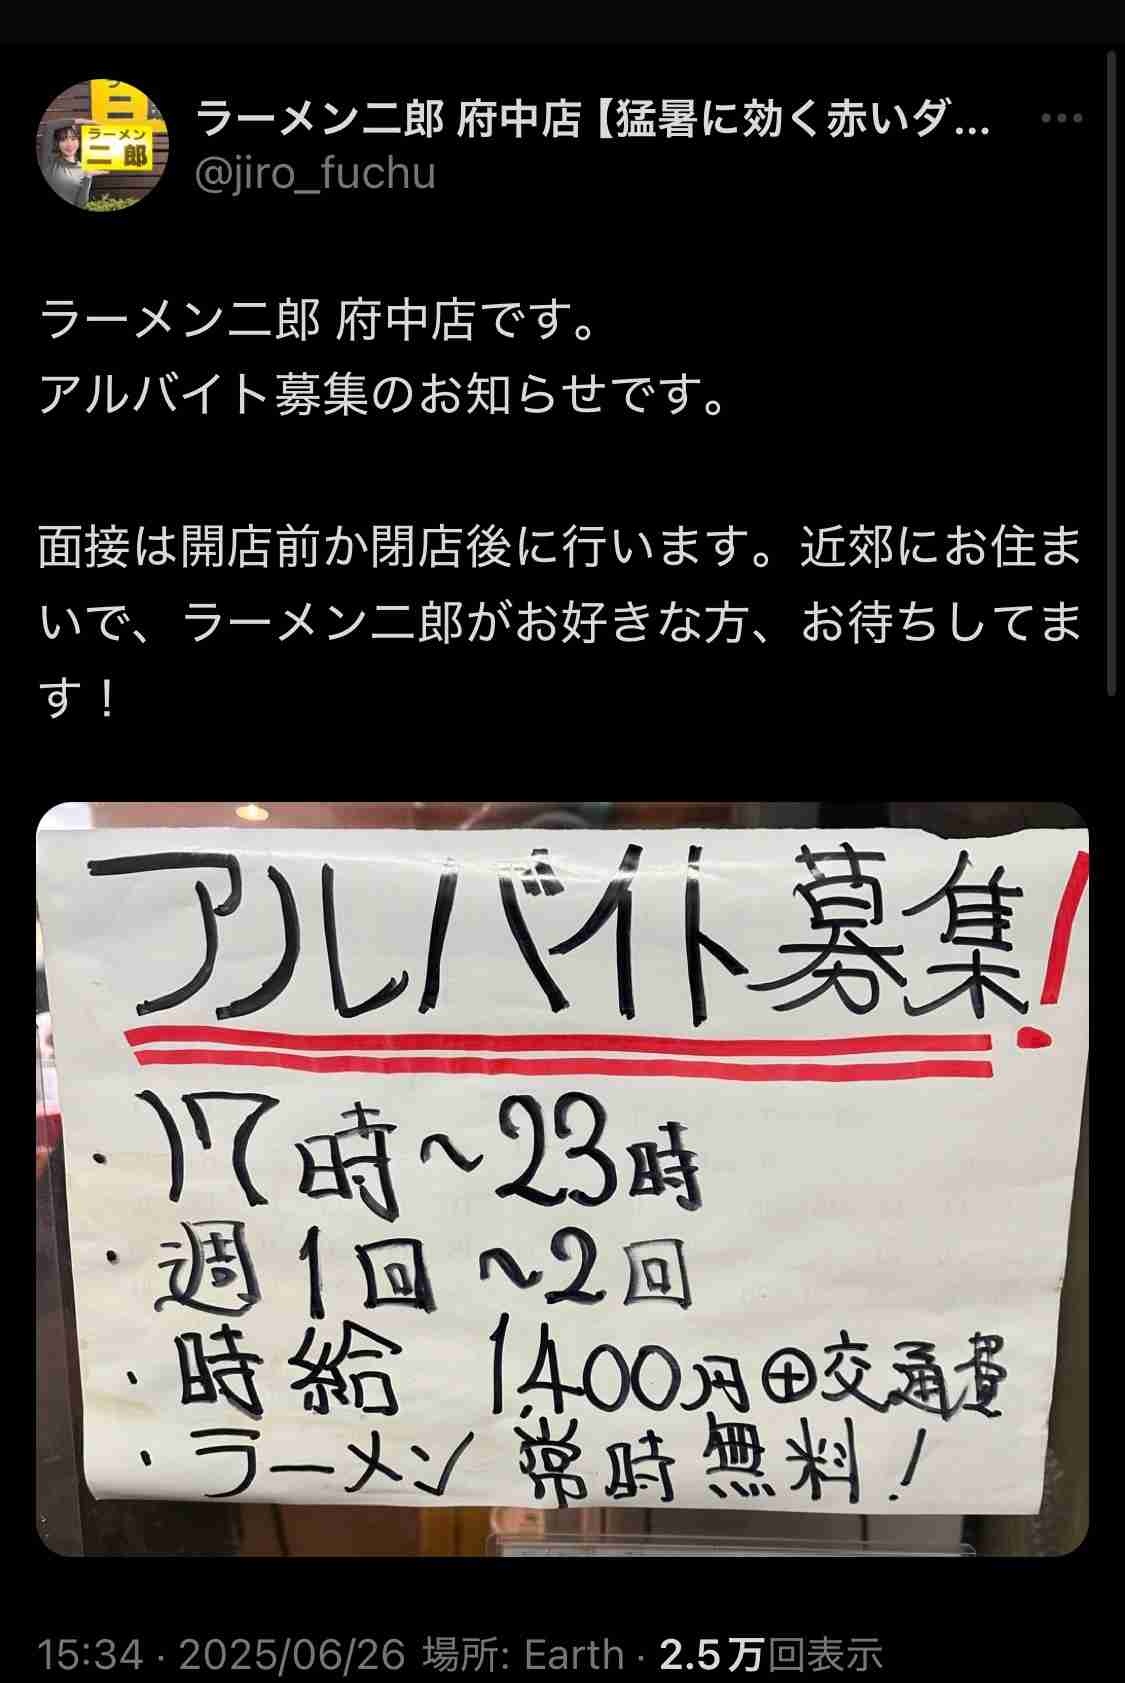 ラーメン二郎 府中店【猛暑に効く赤いダ...
@jiro_fuchu
ラーメン
二郎
ラーメン二郎 府中店です。
アルバイト募集のお知らせです。
面接は開店前か閉店後に行います。近郊にお住ま
いで、ラーメン二郎がお好きな方、お待ちしてま
す！
アルバイト募集!
・17時〜23時
・週1回〜2回
・時給 1400円⊕交通費
・ラーメン 常時無料!
15:34 · 2025/06/26 場所: Earth · 2.5万回表示